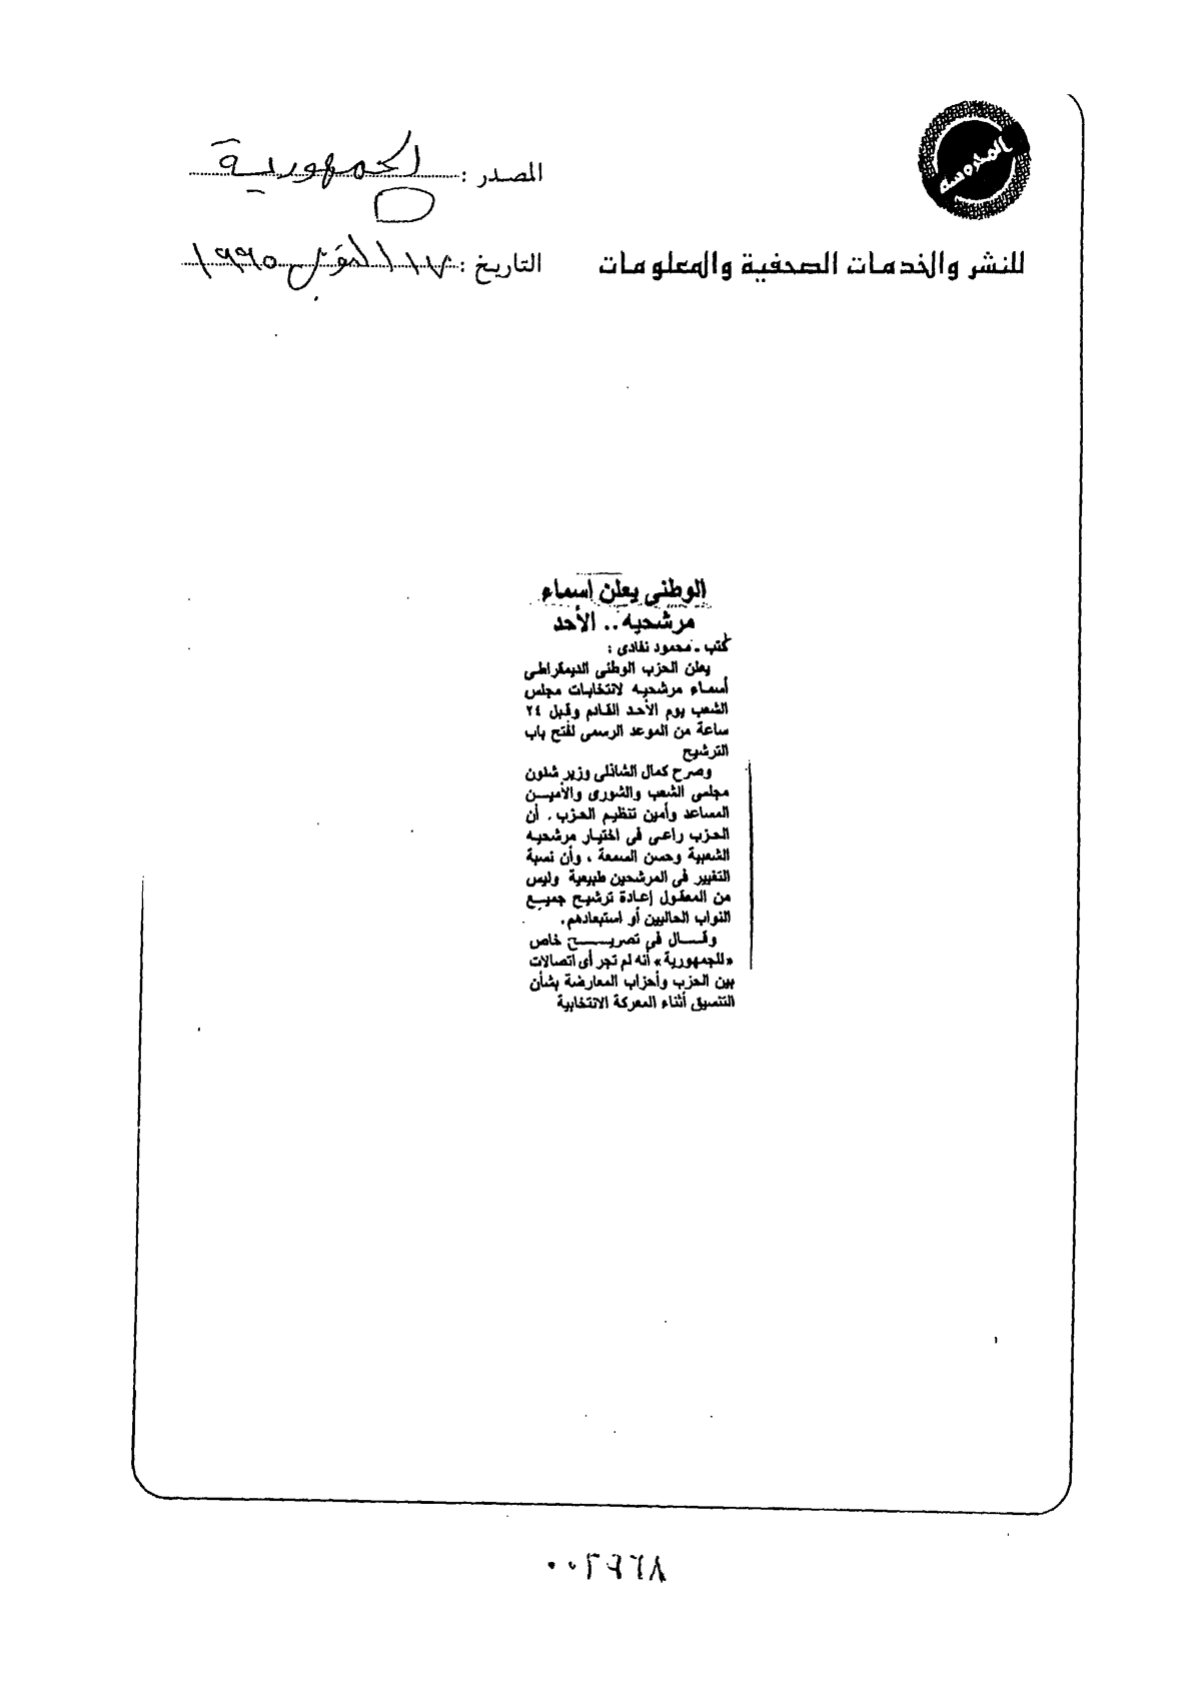 المحروسة
المصدر : الجمهورية
للنشر والخدمات الصحفية والمعلومات
التاريخ : ١٧ أكتوبر ١٩٩٥
الوطنى يعلن اسماء
مرشحيه .. الأحد
كتب ـ محمود نفادى :
يعلن الحزب الوطنى الديمقراطى
أسماء مرشحيه لانتخابات مجلس
الشعب يوم الأحد القادم وقبل ٢٤
ساعة من الموعد الرسمى لفتح باب
الترشيح
وصرح كمال الشاذلى وزير شئون
مجلسى الشعب والشورى والأمين
المساعد وأمين تنظيم الحزب . أن
الحزب راعى فى اختيار مرشحيه
الشعبية وحسن السمعة ، وأن نسبة
التغيير فى المرشحين طبيعية وليس
من المعقول إعادة ترشيح جميع
النواب الحاليين أو استبعادهم .
وقال فى تصريح خاص
«للجمهورية» أنه لم تجر أى اتصالات
بين الحزب وأحزاب المعارضة بشأن
التنسيق أثناء المعركة الانتخابية